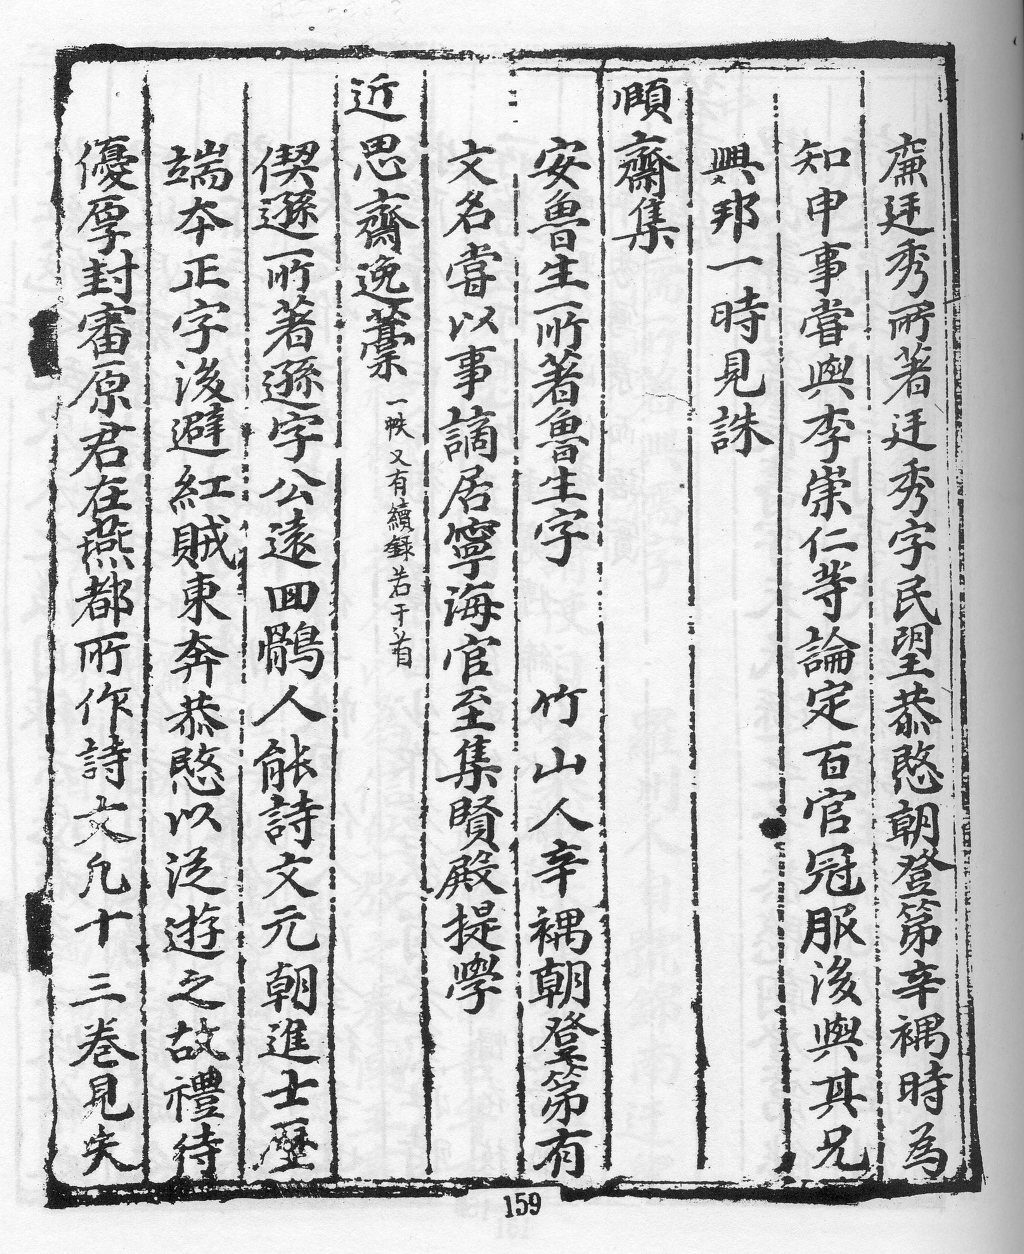 廉廷秀所著廷秀字民望恭愍朝登第辛禑時為
知申事嘗與李崇仁等論定百官冠服後與其兄
興邦一時見誅
順齋集
安魯生所著魯生字　　竹山人辛禑朝登第有
文名嘗以事謫居寧海官至集賢殿提學
近思齋逸藁 一帙又有續錄若干首
偰遜所著遜字公遠回鶻人能詩文元朝進士歷
端本正字後避紅賊東奔恭愍以從遊之故禮待
優厚封審原君在燕都所作詩文凡十三卷見失
159